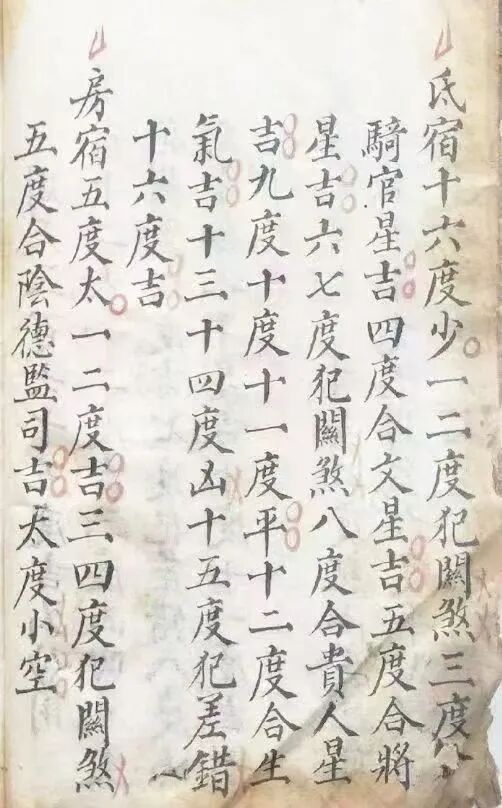 氐宿十六度少一二度犯關煞三度
騎官星吉四度合文星吉五度合將
星吉六七度犯關煞八度合貴人星
吉九度十度十一度平十二度合生
氣吉十三十四度凶十五度犯差錯
十六度吉
房宿五度太一二度吉三四度犯關煞
五度合陰德監司吉太度小空